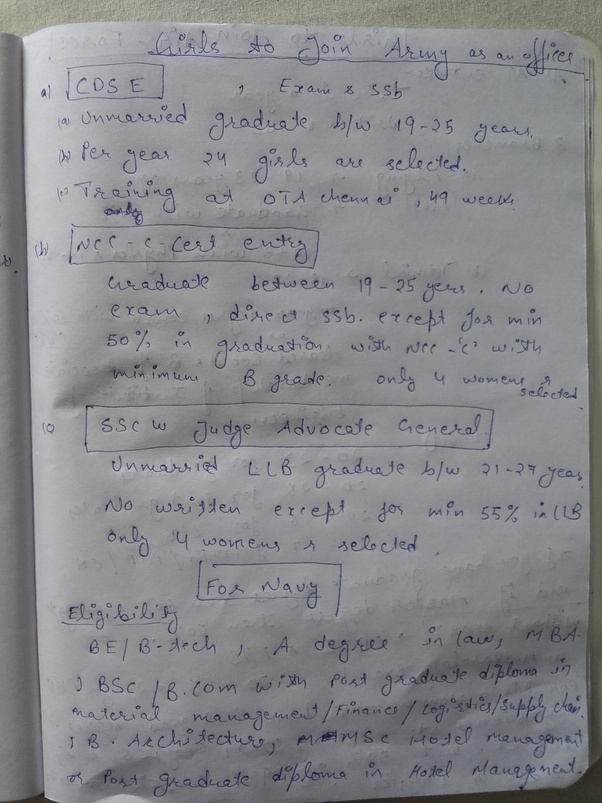 Girls to Join Army as an officer
a) CDS E , Exam & SSb
(a) Unmarried graduate b/w 19-25 years.
(b) Per year 24 girls are selected.
(c) Training at OTA Chennai, 49 week
only
(b) NCC-C-Cert entry
Graduate between 19-25 yers. No
exam, direct SSb. except for min
50% in graduation with NCC-'C' with
minimum B grade. only 4 womens r
selected
(c) SSC W Judge Advocate General
Unmarried LLB graduate b/w 21-27 year
No written except for min 55% in LLB
only 4 womens r selected
For Navy
Eligibility
BE/B-tech, A degree in law, MBA
, BSC/B.Com with Post graduate diploma in
material management/Finance/Logistics/Supply chain
, B. Architecture, MSc Hotel management
or Post graduate diploma in Hotel Management.